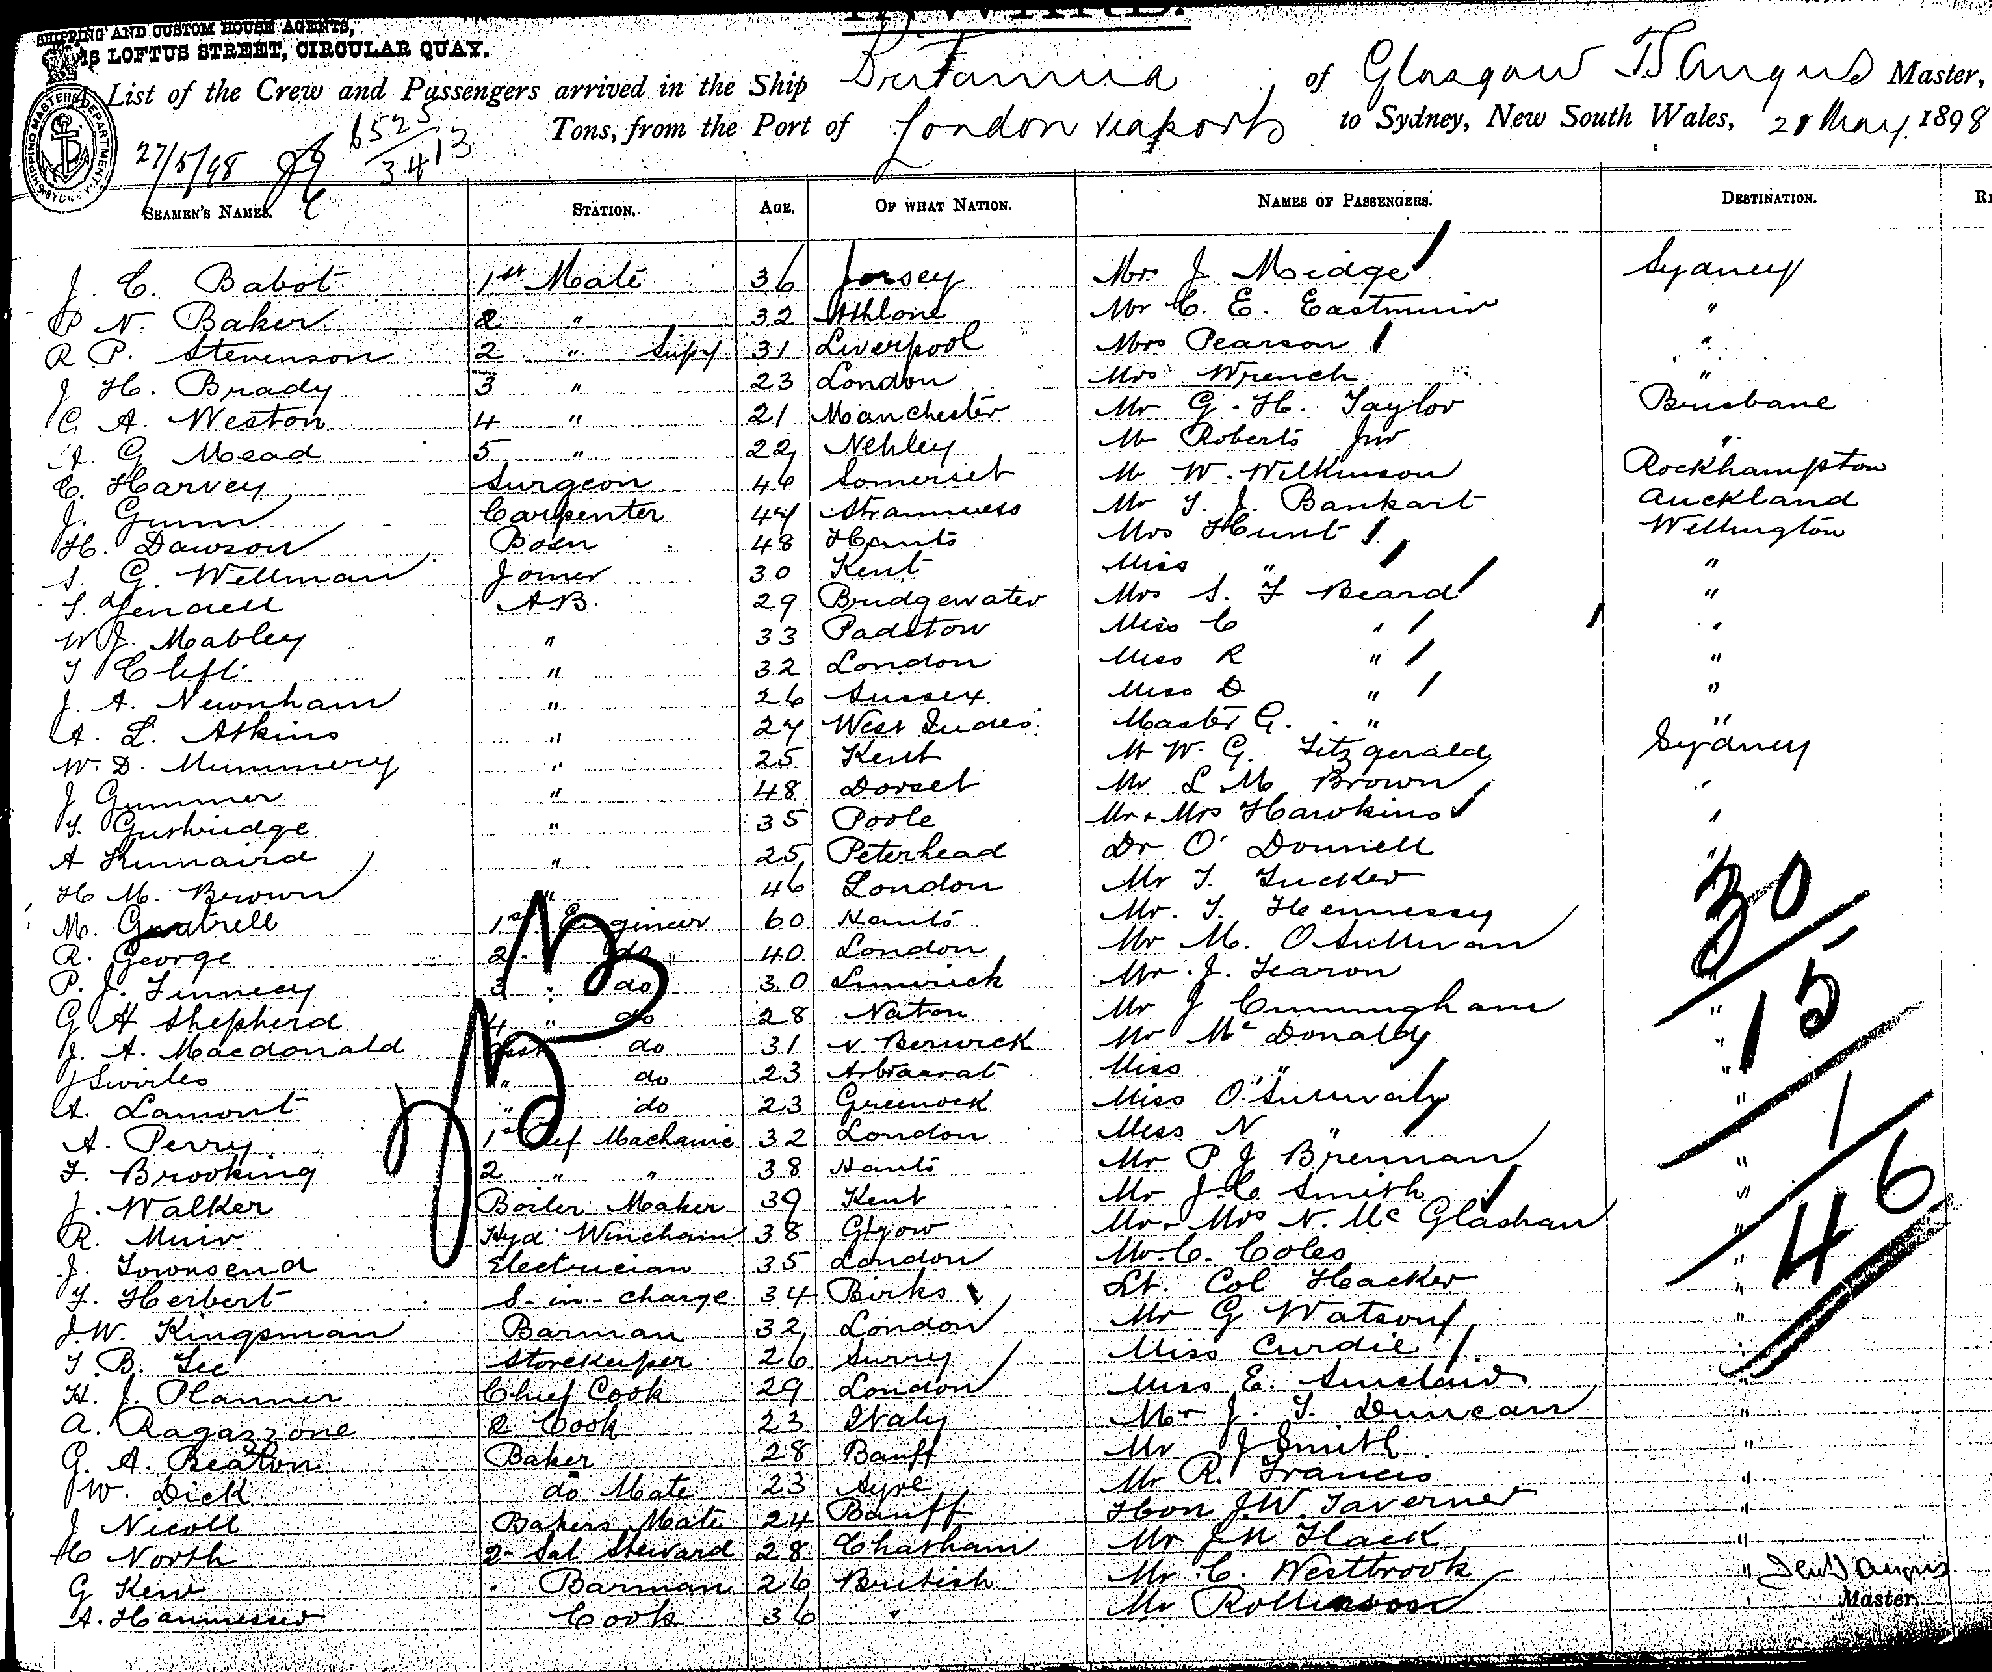 SHIPPING AND CUSTOM HOUSE AGENTS,
LOFTUS STREET, CIRCULAR QUAY.
List of the Crew and Passengers arrived in the Ship Britannia, of Glasgow Master,
Tons, from the Port of London via ports to Sydney, New South Wales, 21 May 1898
27/5/98 6525 3413
SHIPPING MASTER'S DEPARTMENT SYDNEY
SEAMEN'S NAMES. STATION. AGE. OF WHAT NATION. NAMES OF PASSENGERS. DESTINATION.
J. C. Babot 1st Mate 36 Jersey Mrs J. Midge Sydney
P N. Baker 2 " 32 Athlone Mr C. E. Eastmuir "
R P. Stevenson 2 " Supy 31 Liverpool Mrs Pearson "
J H. Brady 3 " 23 London Mrs Wrench "
C. A. Weston 4 " 21 Manchester Mr G. H. Taylor Brisbane
A. G Mead 5 " 22 Mr Roberts Jnr "
C. Harvey Surgeon 46 Somerset Mr W. Wilkinson Rockhampton
J. Gunn Carpenter 47 Mr T. J. Bankart Auckland
H. Dawson Bosn 48 Hants Mrs Hunt Wellington
S. G. Wellman Joiner 30 Kent Miss " "
T. Yendell A.B. 29 Bridgewater Mrs S. F Beard "
W J. Mabley " 33 Padstow Miss C " "
T Clift " 32 London Miss R " "
J. A. Newnham " 26 Sussex Miss D " "
A. L. Atkins " 27 West Indies Master G. " "
W. D. Mummery " 25 Kent Mr W. G. Fitzgerald Sydney
J Gummer " 48 Dorset Mr L M. Brown "
T. Gushridge " 35 Poole Mr & Mrs Hawkins "
A Kinnaird " 25 Peterhead Dr O'Donnell "
H M. Brown " 46 London Mr T. Tucker 30
M. Guatrell 1st Engineer 60 Hants Mr. T. Hennessy
R. George 2 " do 40 London Mr M. OSullivan
P. J. Finnecy 3 " do 30 Limerick Mr. J. Fearon
G. H Shepherd 4 " do 28 Mr J Cunningham " 15
J. A. Macdonald Asst do 31 N. Berwick Mr McDonald "
J Swirles " do 23 Miss " "
A. Lamont " do 23 Greenock Miss O'Sullivan "
A. Perry 1st Ref Machanic 32 London Miss N " 1
F. Brooking 2 " " 38 Hants Mr P J Brennan "
J. Walker Boiler Maker 39 Kent Mr J. C. Smith "
R. Muir Hyd Winchman 38 Glgow Mr & Mrs N. McGlashan " 46
J. Townsend Electrician 35 London Mr C. Coles "
F. Herbert S- in- charge 34 Birks Lt. Col Hacker "
J. W. Kingsman Barman 32 London Mr G Watson "
T. B. Lee Storekeeper 26 Surry Miss Curdie "
H. J. Planner Chief Cook 29 London Miss E. Sinclair "
A. Ragazzone 2 Cook 23 Italy Mr J. T. Duncan "
G. A. Beaton Baker 28 Banff Mr J Smith "
J W. Dick do Mate 23 Ayre Mr R. Francis "
J Nicoll Bakers Mate 24 Banff Hon J. W. Taverner "
H North 2nd Sal Steward 28 Chatham Mr J N Flack "
G Kew " Barman 26 British Mr C. Westbrook "
A. Cook 36 " Mr Rollinson
Master.